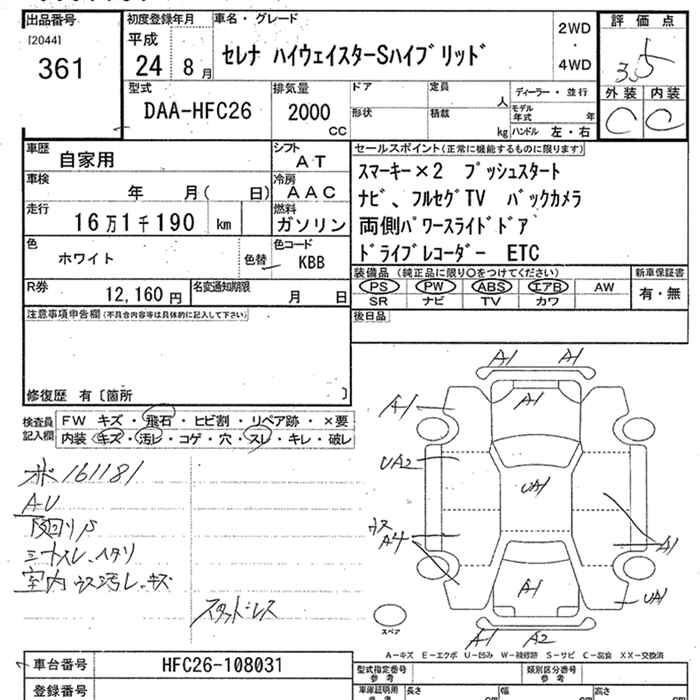 出品番号
[2044]
361
初度登録年月
平成
24 8月
車名・グレード
セレナ ハイウェイスターSハイブリッド
2WD
・
4WD
評価点
3.5
外装 内装
C C
型式
DAA-HFC26
排気量
2000
CC
ドア
形状
定員
人
積載
kg
ディーラー・並行
モデル年式 年
ハンドル 左・右
車歴
自家用
シフト
AT
車検
年 月( 日)
冷房
AAC
走行
16万1千190 km
燃料
ガソリン
色
ホワイト
色替
色コード
KBB
R券
12,160円
名変通知期限
月 日
セールスポイント(正常に機能するものに限ります)
スマーキー×2 プッシュスタート
ナビ、フルセグTV バックカメラ
両側パワースライドドア
ドライブレコーダー ETC
装備品 (純正品に限り○をつけてください)
PS PW ABS エアB AW
SR ナビ TV カワ
新車保証書
有・無
後日品
注意事項申告欄(不具合内容等は具体的に記入して下さい)
修復歴 有〔箇所 〕
検査員
記入欄
FW キズ・飛石・ヒビ割・リペア跡・×要
内装 キズ・汚レ・コゲ・穴・スレ・キレ・破レ
161181
A-U
室内 ウス汚レ、キズ
スタッドレス
A1 A1
A1
A1
UA2
UA1
ウス
A4
A1
A1
UA1
A1 A2
スペア
A-キズ E-エクボ U-凹み W-補修跡 S-サビ C-腐食 XX-交換済
車台番号
HFC26-108031
登録番号
型式指定番号
参考
類別区分番号
参考
車庫証明用
参考
長さ cm
幅 cm
高さ cm